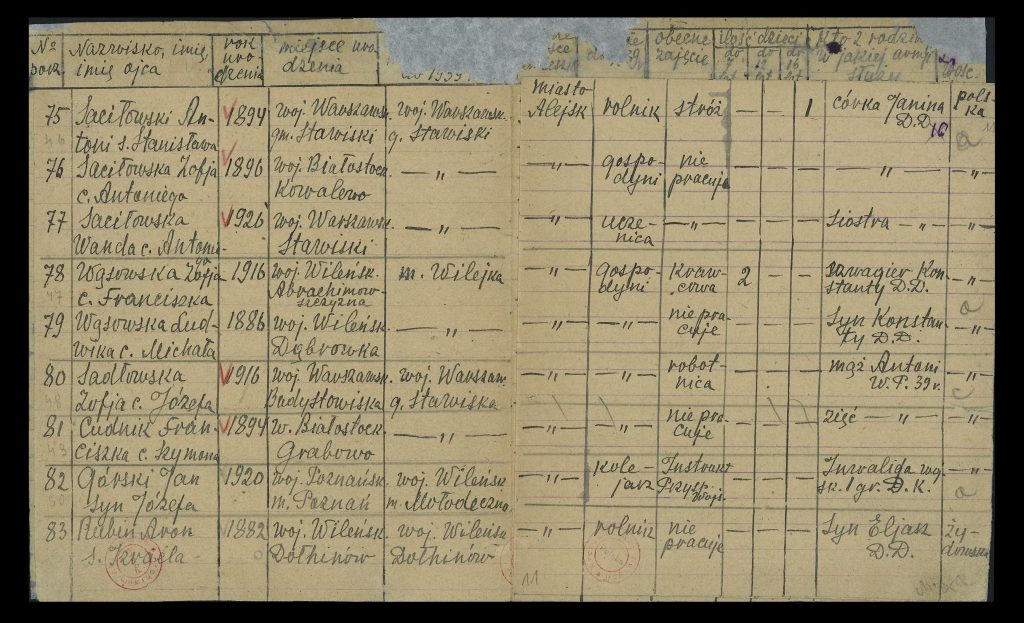 № porz. Nazwisko, imię, imię ojca rok uro- dzenia miejsce uro- dzenia obecne zajęcie ilość dzieci do do do Kto z rodzin w jakiej armji służy
75 Saciłowski An- toni s. Stanisława 1894 woj. Warszawsk. gm. Stawiski woj. Warszawsk. g. Stawiski miasto Alejsk rolnik stróż — — 1 córka Janina D.D. pols- ka
76 Saciłowska Zofja c. Antoniego 1896 woj. Białostock. Kowalewo — „ — — „ — gospo- dyni nie pracuje — — — — „ — — „ —
77 Saciłowska Wanda c. Antonie- go 1926 woj. Warszawsk. Stawiski — „ — — „ — ucze- nica — „ — — — — siostra — „ — — „ —
78 Wąsowska Zofja c. Franciszka 1916 woj. Wileńsk. Abrachimow- szczyzna m. Wilejka — „ — gospo- dyni kraw- cowa 2 — — szwagier Kon- stanty D.D. — „ —
79 Wąsowska Lud- wika c. Michała 1886 woj. Wileńsk. Dąbrowka — „ — — „ — — „ — nie pra- cuje — — — syn Konstan- ty D.D. — „ —
80 Sadłowska Zofja c. Józefa 1916 woj. Warszawsk. woj. Warszaw. g. Stawiska — „ — — „ — robot- nica — — — mąż Antoni W.P. 39 r. — „ —
81 Cudnik Fran- ciszka c. Szymona 1894 w. Białostock. Grabowo — „ — — „ — — „ — nie pra- cuje — zięć — „ — — „ —
82 Górski Jan syn Józefa 1920 woj. Poznańsk. m. Poznań woj. Wileńsk m. Mołodeczno — „ — kole- jarz Instrukt Przysp. Wojs. — — — Inwalida woj- sk. 1 gr. D.K. — „ —
83 Rubin Aron 1882 woj. Wileńsk. Dołhinów woj. Wileńsk Dołhinów — „ — rolnik nie pracuje — — — syn Eljasz D.D. ży- dowska
11